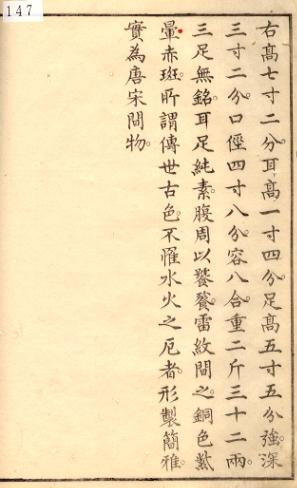 147
右髙七寸二分耳髙一寸四分足髙五寸五分強深
三寸二分口徑四寸八分容八合重二斤三十二兩
三足無銘耳足純素腹周以饕餮雷紋間之銅色紫
暈赤斑所謂傳世古色不罹水火之厄者形製簡雅
實為唐宋間物